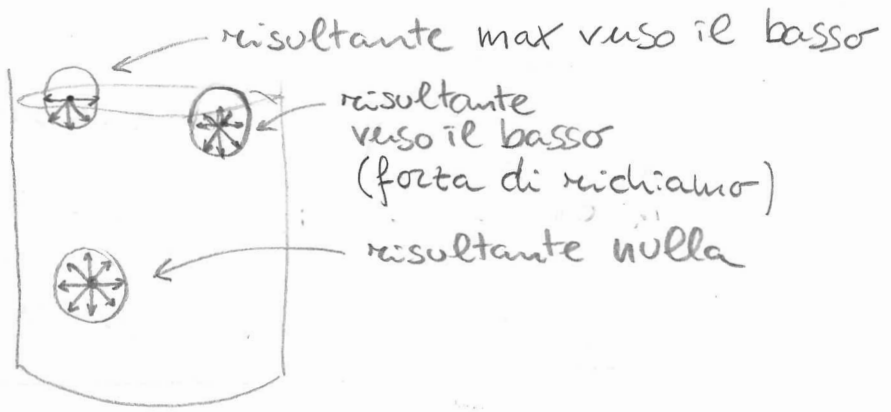 risultante max verso il basso
risultante
verso il basso
(forza di richiamo)
risultante nulla